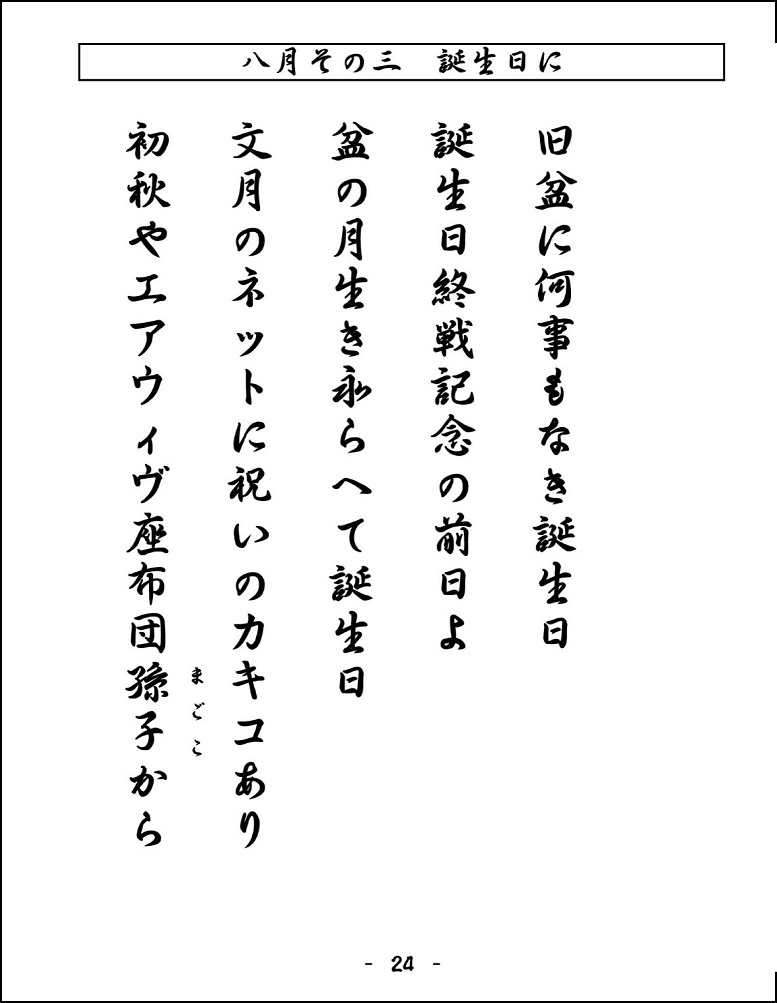 八月その三　誕生日に
旧盆に何事もなき誕生日
誕生日終戦記念の前日よ
盆の月生き永らへて誕生日
文月のネットに祝いのカキコあり
初秋やエアウィヴ座布団孫子から
まごこ
- 24 -